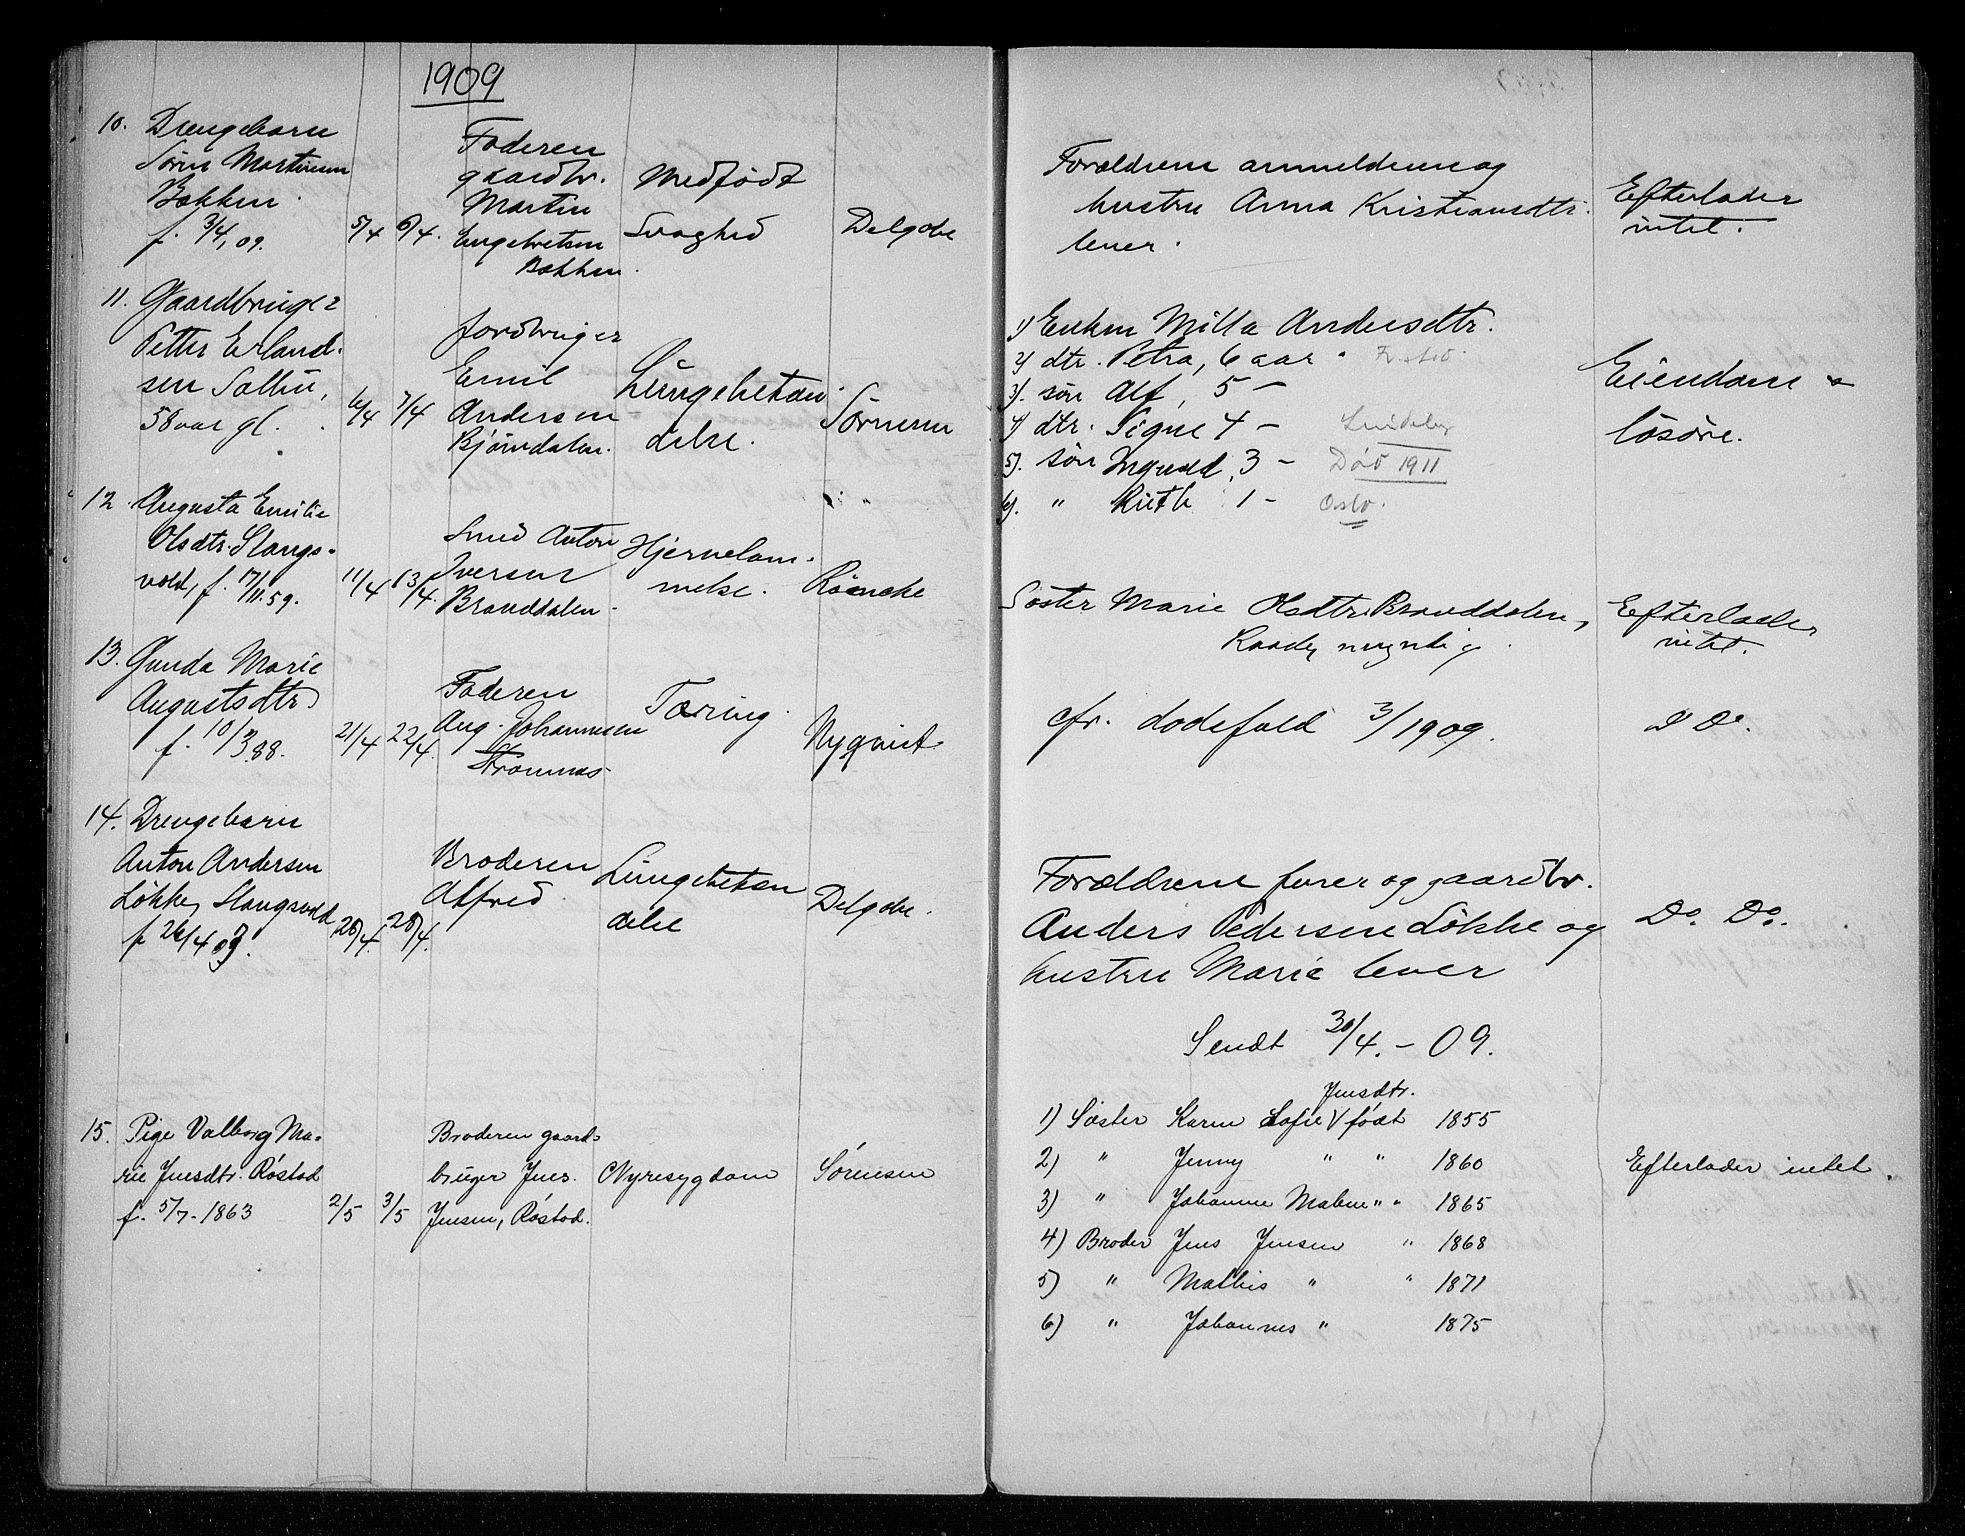 1909
10. Drengebarn
Søren Martinsen
Bakken.
f. 3/4, 09.
5/4 6/4.
Faderen
gaardbr.
Martin
Engebretsen
Bakken.
Medfødt
Svaghed
Delgobe
Forældrene anmelderen og
hustru Anna Kristiansdtr.
lever.
Efterlader
intet.
11. Gaardbruger
Petter Erland-
sen Solli,
58 aar gl.
6/4 7/4
Jordbruger
Emil
Andersen
Bjørndalen.
Lungebetæn-
delse.
Sørensen
1) Enken Milla Andersdtr.
2) dtr. Petra, 6 aar
3). søn Alf, 5 –
4) dtr. Signe 4 –
5). søn Ingvald, 3 – Død 1911
6). " Ruth 1 – Oslo.
Eiendom &
løsøre.
12. Augusta Emilie
Olsdtr. Slangs-
vold, f. 17/11.59.
11/4 13/4.
Smed Anton
Iversen
Branddalen.
Hjernelam-
melse.
Søster Marie Olsdtr. Branddalen,
Raade, myndig.
Efterlader
intet.
13. Gunda Marie
Augustsdtr
f. 10/3 88.
21/4 22/4.
Faderen
Aug. Johannesen
Strømnæs
Tæring.
Nyqvist
cfr. dødsfald 3/1909.
D Do.
14. Drengebarn
Anton Andersen
Løkke, Slangsvold
f. 26/4 09.
28/4. 28/4.
Broderen
Alfred.
Lungebetæn
delse
Delgobe.
Forældrene forer og gaardbr.
Anders Pedersen Løkke og
hustru Marie lever
Do. Do.
Sendt 30/4. – 09.
15. Pige Valborg Ma-
rie Jensdtr. Røstad
f. 5/7 - 1863
2/5 3/5
Broderen gaard-
bruger Jens
Jensen, Røstad.
Nyresygdom
Sørensen
Jensdtr.
1) Søster Karen Sofie V født 1855
2) " Jenny " " 1860
3) " Johanne Malene " " 1865
4) Broder Jens Jensen " 1868
5) " Mathis " " 1871
6) " Johannes " 1875
Efterlader intet.